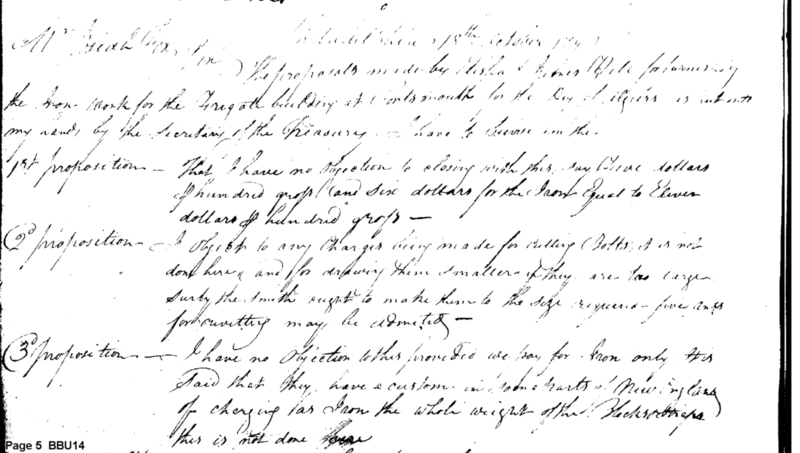 Mr
Philadelphia 15th October 179
The proposals made by Elisha & for furnishing
the Iron work for the Frigate building at Portsmouth for the Dey of Algiers is put into
my hands by the Secretary of the Treasury – I have to observe on the
1st proposition – That I have no objection to closing with this, say twelve dollars
hundred gross (and six dollars for the Iron Equal to Eleven
dollars hundred gross –
2d proposition – I object to any Charges being made for cutting Bolts; it is not
done here, and for drawing them smaller if they are too large
surely the smith ought to make them to the size required – five cents
for may be admitted –
3d proposition – I have no objection to this provided we pay for Iron only tis
Said that they have a custom in some parts of New England
of charging as Iron the whole weight of the
this is not done here
Page 5 BBU14